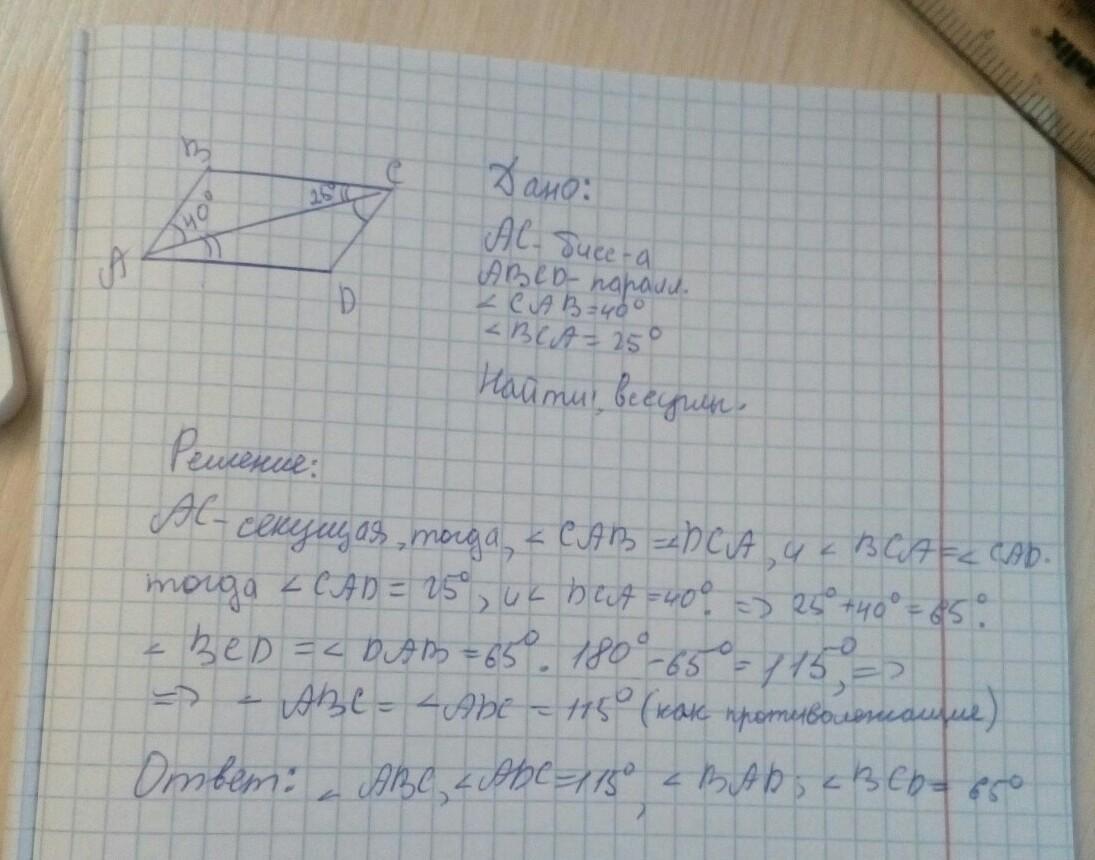 B
C
25°
40°
A
D
Дано:
AC - бисс-а
ABCD - паралл.
∠CAB=40°
∠BCA = 25°
Найти: все углы.
Решение:
AC - секущая, тогда, ∠CAB =∠DCA, и ∠BCA=∠CAD.
тогда ∠CAD = 25°, и ∠DCA =40°. => 25°+40° = 65°.
∠BCD = ∠DAB =65°. 180°-65°=115°, =>
=> ∠ABC = ∠ADC = 115° (как противоложащие)
Ответ: ∠ABC, ∠ADC=115°, ∠BAD; ∠BCD= 65°